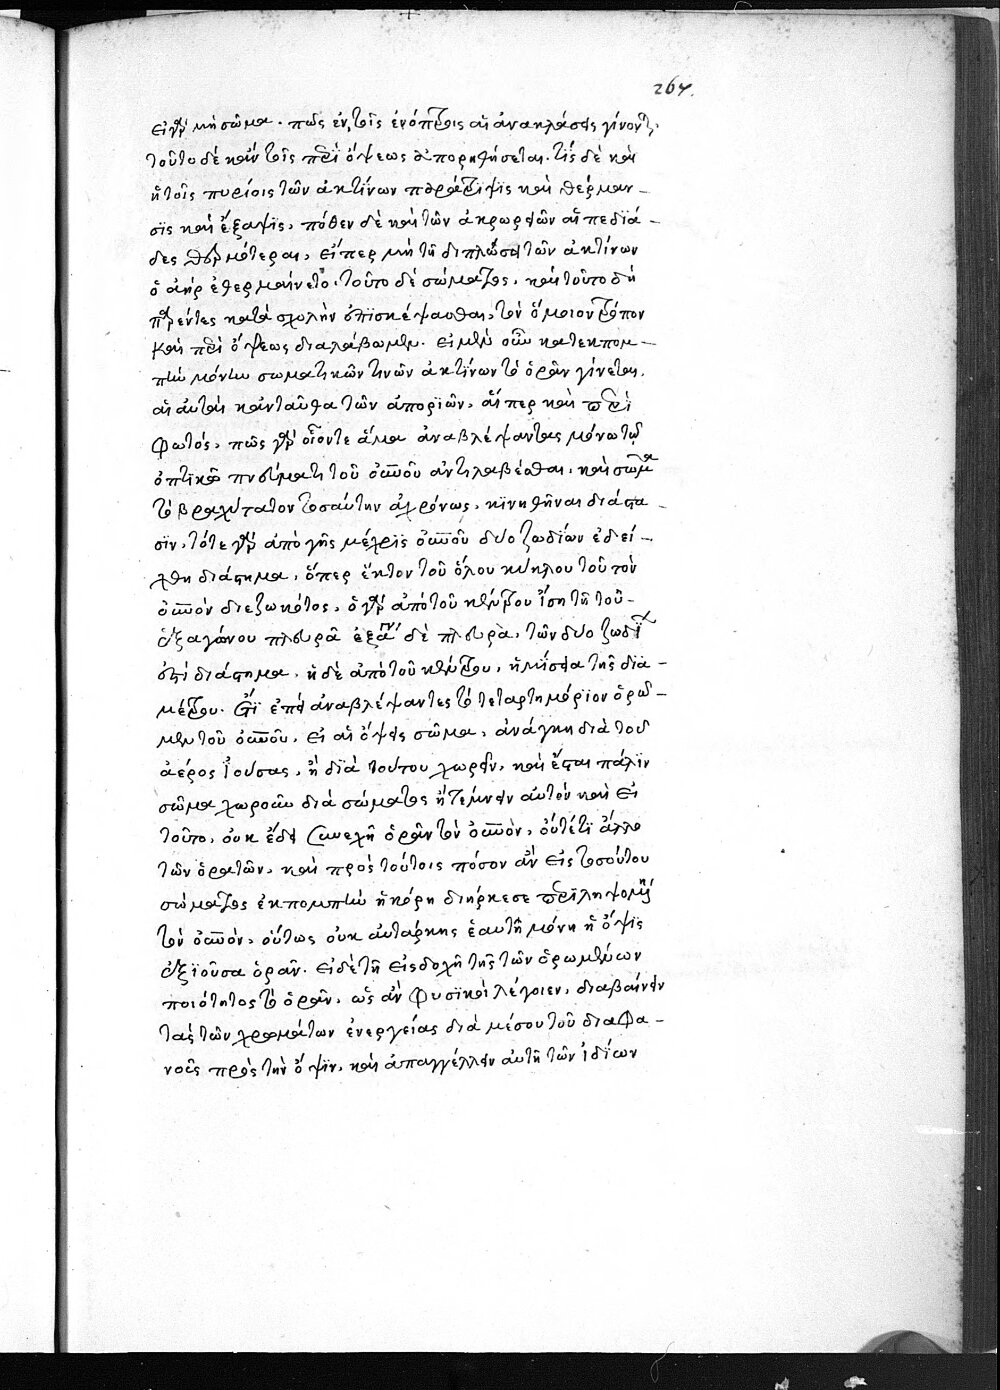 267.
εἰ γὰρ μὴ σῶμα. πῶς ἐν τοῖς ἐνόπτροις αἱ ἀνακλάσεις γίνονται.
τοῦτο δὲ κἀν τοῖς περὶ ὄψεως ἀπορηθήσεται. τίς δὲ καὶ
ἡ τοῖς πυρίοις τῶν ἀκτίνων παράτριψις καὶ θέρμαν-
σις καὶ ἔξαψις, πόθεν δὲ καὶ τῶν ἀκρωρειῶν αἱ πεδιά-
δες θερμότεραι, εἴπερ μὴ τῇ διπλώσει τῶν ἀκτίνων
ὁ ἀὴρ ἐθερμαίνετο. τοῦτο δὲ σώματος. καὶ τοῦτο δὴ
παρέντες κατὰ σχολὴν ἐπισκέψασθαι, τὸν ὅμοιον τρόπον
καὶ περὶ ὄψεως διαλάβωμεν. εἰ μὲν οὖν κατ' ἐκπομ-
πὴν μόνην σωματικῶν τινῶν ἀκτίνων τὸ ὁρᾶν γίνεται.
αἱ αὐταὶ κἀνταῦθα τῶν ἀποριῶν, αἵπερ καὶ περὶ
φωτός, πῶς γὰρ οἷόν τε ἅμα ἀναβλέψαντας μόνῳ τῷ
ὀπτικῷ πνεύματι τοῦ οὐνοῦ ἀντιλαβέσθαι. καὶ σῶμα
τὸ βραχύτατον τοσαύτην ἀχρόνως, κινηθῆναι διάστα-
σιν, τότε γὰρ ἀπὸ γῆς μέχρις οὐνοῦ δύο ζωδίων ἐδεί-
χθη διάστημα, ὅπερ ἕκτον τοῦ ὅλου κύκλου τοῦ τὸν
οὐνὸν διεζωκότος, ὁ γὰρ ἀπὸ τοῦ κέντρου ἴση τῇ τοῦ
ἑξαγώνου πλευρᾷ ἑξαγώνου δὲ πλευρὰ, τῶν δύο ζωδίων
ἐστὶ διάστημα, ἡ δὲ ἀπὸ τοῦ κέντρου, ἡμίσεια τῆς δια-
μέτρου. ἔτι ἐπεὶ ἀναβλέψαντες τὸ τεταρτημόριον ὁρῶ-
μεν τοῦ οὐνοῦ. εἰ αἱ ὄψεις σῶμα, ἀνάγκη διὰ τοῦ
ἀέρος ἰούσας, ἢ διὰ τούτου χωρεῖν, καὶ ἔσται πάλιν
σῶμα χωροῦν διὰ σώματος ἢ τέμνειν αὐτὸν καὶ εἰ
τοῦτο, οὐκ ἔδει συνεχῆ ὁρᾶν τὸν οὐνὸν, οὔτέ τι ἄλλο
τῶν ὁρατῶν, καὶ πρὸς τούτοις πόσον ἂν εἰς τοσούτου
σώματος ἐκπομπὴν ἡ κόρη διήρκεσε περιληψομένη
τὸν οὐνὸν, οὕτως οὐκ αὐτάρκης ἑαυτῇ μόνη ἡ ὄψις
ἐξιοῦσα ὁρᾶν. εἰ δὲ τῇ εἰσδοχῇ τῆς τῶν ὁρωμένων
ποιότητος τὸ ὁρᾶν, ὡς ἂν φυσικοὶ λέγοιεν, διαβαίνειν
τὰς τῶν χρωμάτων ἐνεργείας διὰ μέσου τοῦ διαφα-
νοῦς πρὸς τὴν ὄψιν, καὶ ἀπαγγέλλειν αὐτῇ τῶν ἰδίων